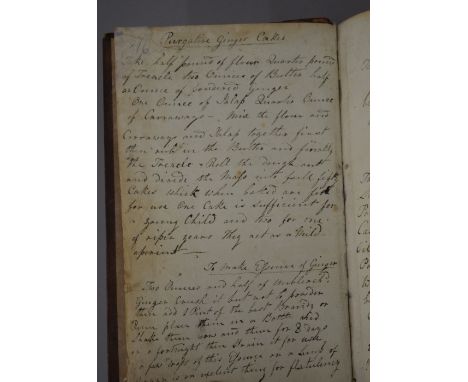 x/6
Purgative Ginger Cakes
Take half pound of flour Quarter pound
of Treacle two Ounces of Butter half
an Ounce of powdered Ginger
One Ounce of Jalap Quarter Ounce
of Carraways – Mix the flour and
Carraways and Jalap together first
then rub in the Butter and finally
the Treacle – Roll the dough out
and divide the Mass into full fifty
Cakes which when baked are fit
for use One Cake is sufficient for
a young Child and two for one
of riper years they act as a Mild
aperient –
To Make Essence of Ginger
Two Ounces and half of Unbleach'd
Ginger Crush it but not to powder
then add 1 Pint of the best Brandy or
place them in a Bottle and
Shake them now and then for 8 days
or a fortnight then Strain it for use
a few drops of this Essence on a Lump of
is an exelent thing for flatulency